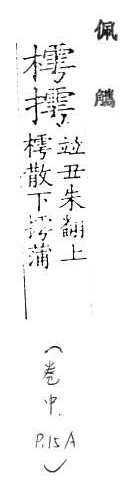 佩觿
樗摴
並丑朱翻上
樗散下摴蒲
(卷中.
P.15A)